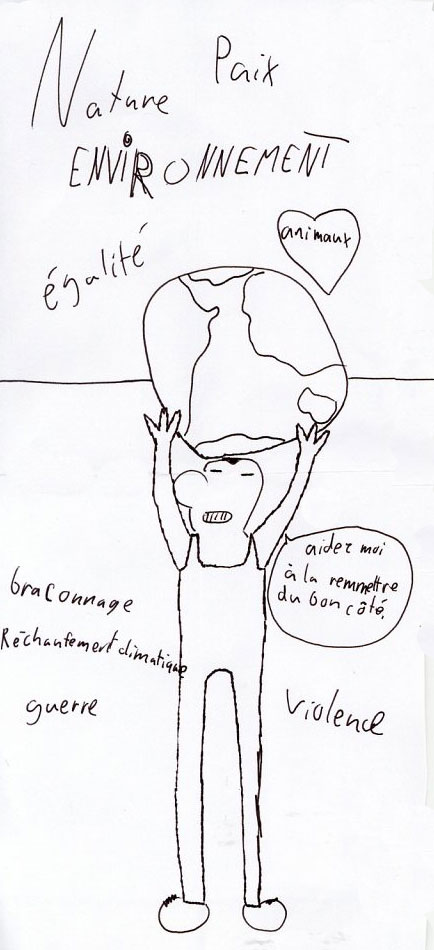 Nature
Paix
ENViRONNEMENT
animaux
égalité
aidez moi
à la remmettre
du bon côté.
braconnage
Réchaufement climatique
guerre
violence